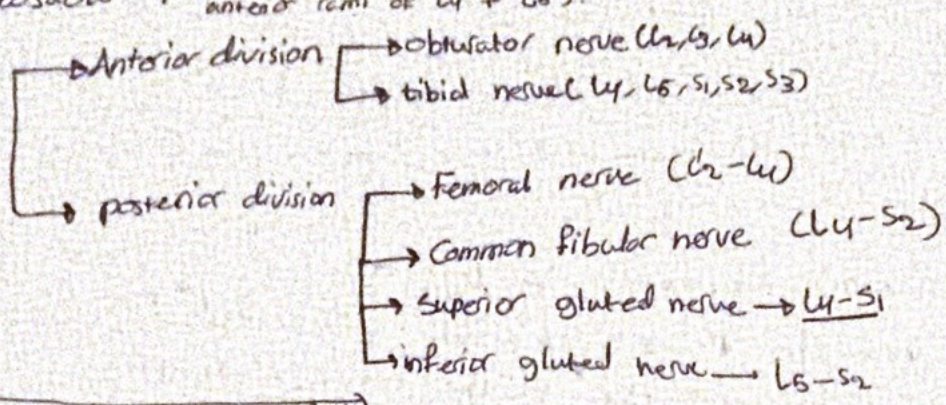 anterior rami of L4 + L5).
Anterior division
obturator nerve (L2, L3, L4)
tibial nerve (L4, L5, S1, S2, S3)
posterior division
Femoral nerve (L2-L4)
Common fibular nerve (L4-S2)
Superior gluteal nerve → L4-S1
inferior gluteal nerve — L5-S2